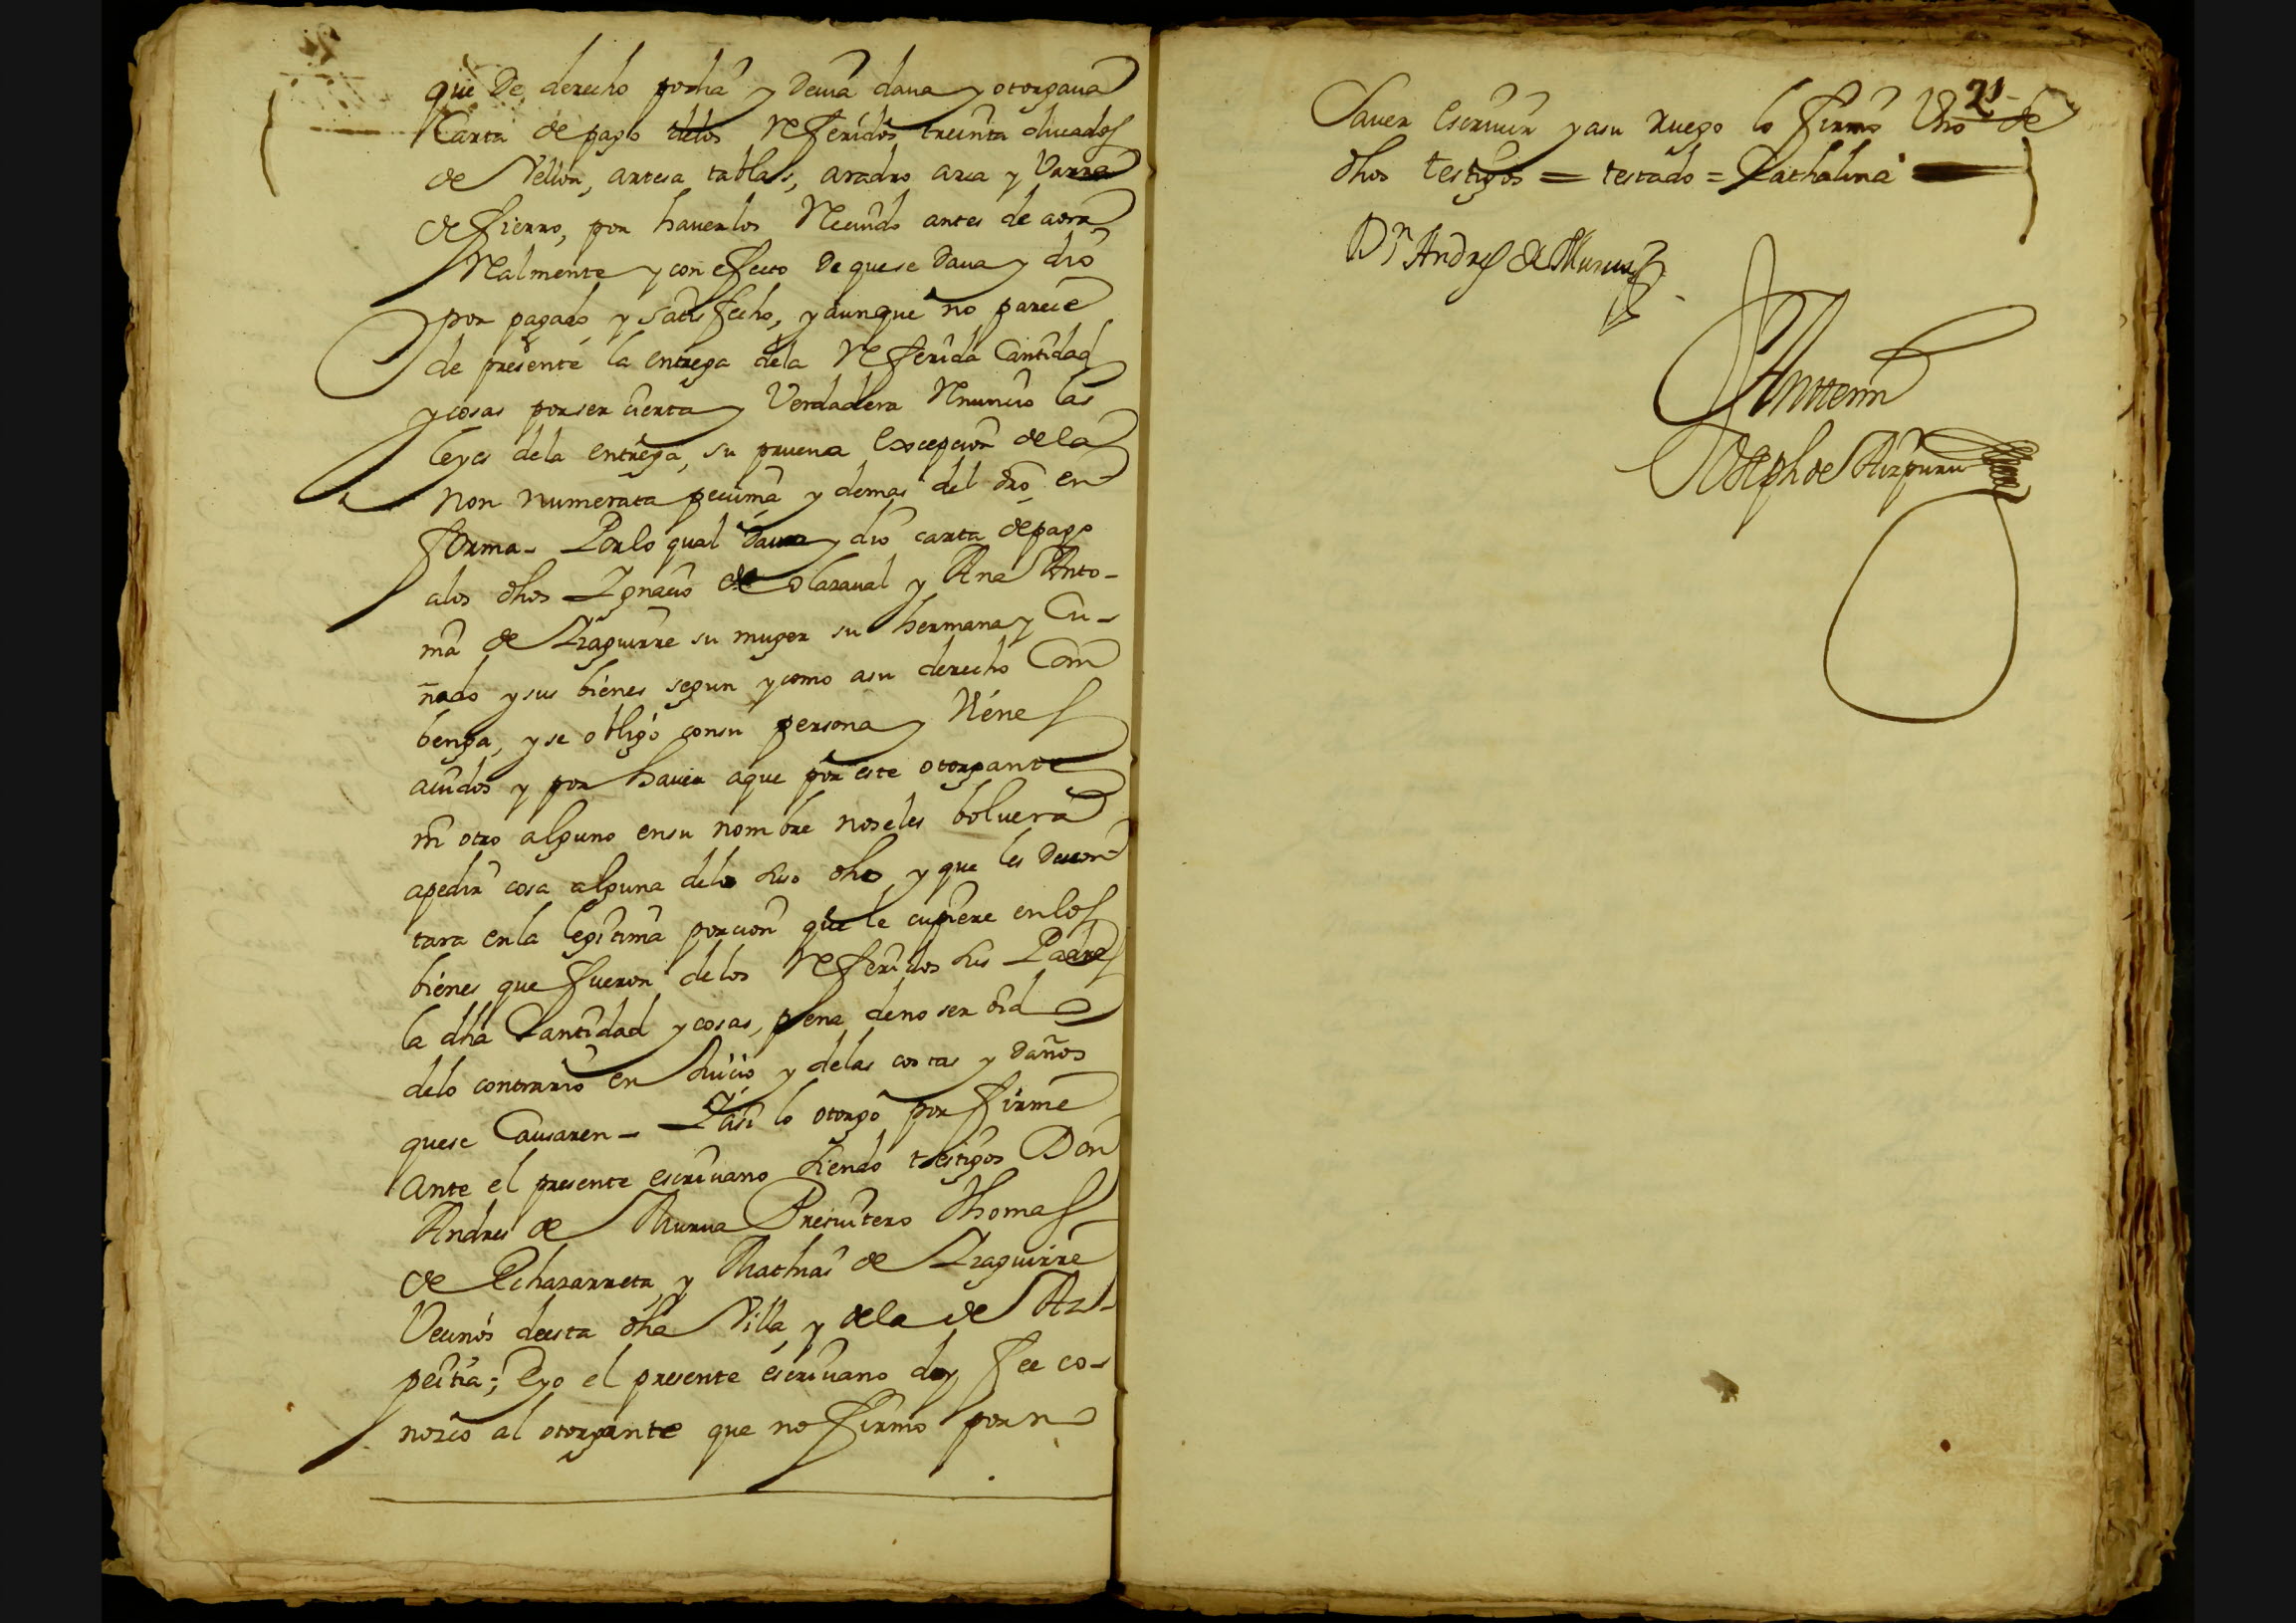 que de derecho podia y devia dava y otorgava
Carta de pago delos Referidos treinta ducados
de Vellon, artesa tablas, aradro arca y Varra
de fierro, por haverlos Recivido antes de aora
Realmente y con efecto de quese dava y dio
por pagado y satisfecho, y aunque no parece
de presente la entrega dela Referida Cantidad
y cosas por ser cierta y Verdadera Renuncio las
leyes dela entrega, su prueva excepcion dela
non numerata pecunia y demas del dro en
forma - Por lo qual dava y dio carta de pago
alos dhos Ignacio de Olazaval y Ana Anto-
nia de Izaguirre su muger su hermana y Cu-
ñado y sus bienes segun y como asu derecho Com
benga, y se obligo consu persona y Vienes
avidos y por haver aque por este otorgante
ni otro alguno ensu nombre noseles bolvera
apedir cosa alguna delo suso dho y que les descon-
tara enla legitima porcion que le cupiere enlos
bienes que fueron delos Referidos sus Padres
la dha Cantidad y cosas, pena deno ser oid
delo contrario en Juicio y delas costas y daños
quese Causaren - Y asi lo otorgo por firme
Ante el presente escrivano siendo testigos Don
Andres de Murua Presvitero Thomas
de Echazarreta y Mathias de Izaguirre
Vecinos desta dha Villa y dela de Az-
peitia; E yo el presente escrivano doy fee co-
nozco al otorgante que no firmo por n
21
Saver Escrivir y asu Ruego lo firmo Uno de
dhos testigos = testado = Cathalina
Dn Andres de Murua
Ante mi
Joseph de Aizpuru